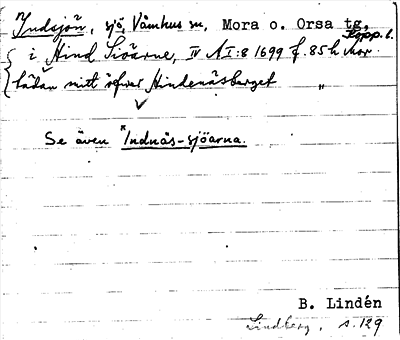 *Indsjön, sjö, Våmhus sn, Mora o. Orsa tg,
Kopp. l.
i Hind Siöärne, IV A I:8 1699 f. 85 h
mitt öfwer Hindenäsberget "
Se även *Indnäs-sjöarna.
B. Lindén
Lindberg, s. 129